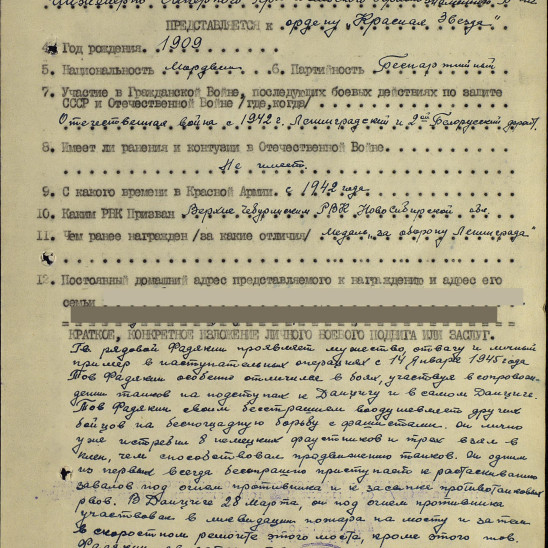 ПРЕДСТАВЛЯЕТСЯ к ордену „Красная Звезда"
4. Год рождения. 1909
5. Национальность Мордвин 6. Партийность Беспартийный
7. Участие в Гражданской Войне, последующих боевых действиях по защите
СССР и Отечественной Войне /где,когда/
Отечественная война с 1942 г. Ленинградский и 2ой Белорусский фронт
8. Имеет ли ранения и контузии в Отечественной Войне
Не имеет.
9. С какого времени в Красной Армии. с 1942 года
10. Каким РВК Призван РВК Новосибирской обл.
11. Чем ранее награжден /за какие отличия/ Медаль „за оборону Ленинграда"
12. Постоянный домашний адрес представляемого к награждению и адрес его
семьи
КРАТКОЕ, КОНКРЕТНОЕ ИЗЛОЖЕНИЕ ЛИЧНОГО БОЕВОГО ПОДВИГА ИЛИ ЗАСЛУГ.
Гв. рядовой Фадякин проявляет мужество отвагу и личный
пример в наступательных операциях с 14 Января 1945 года
Тов Фадякин особенно отличился в боях, участвуя в сопровож-
дении танков на подступах к Данцигу и в самом Данциге.
Тов Фадякин своим бесстрашием воодушевляет других
бойцов на беспощадную борьбу с фашистами. он лично
уже истребил 8 немецких фаустников и трех взял в
плен, чем способствовал продвижению танков. Он одним
из первых всегда бесстрашно приступает к растаскиванию
завалов под огнем противника и к засыпке противотанковых
рвов. В Данциге 28 марта, он под огнем противника
участвовал в ликвидации пожара на мосту и затем
в скоростном ремонте этого моста, кроме этого тов.
Фадякин